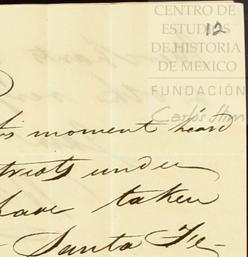 CENTRO DE
ESTUDIOS
DE HISTORIA
DE MEXICO
12
FUNDACIÓN
Carlos Slim
is moment heard
triots under
have taken
- Santa Fe -